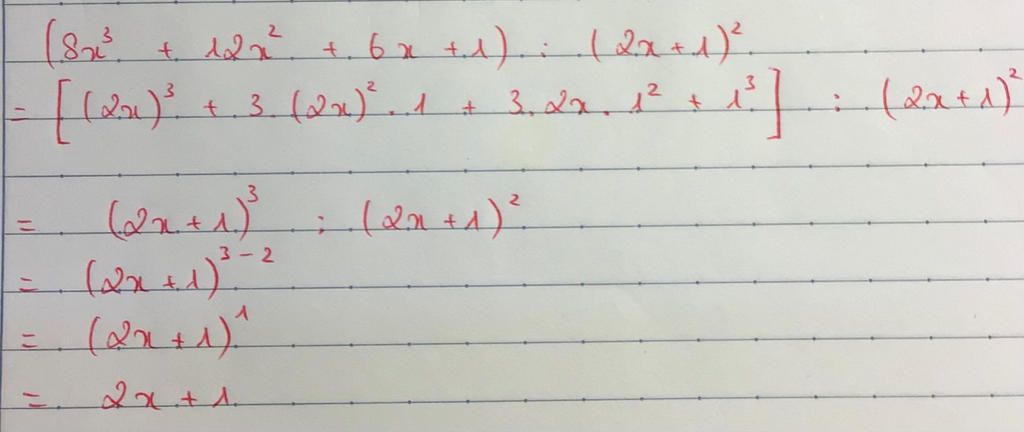 (8x³ + 12x² + 6x + 1) : (2x + 1)²
= [(2x)³ + 3.(2x)².1 + 3.2x.1² + 1³] : (2x + 1)²
= (2x + 1)³ : (2x + 1)²
= (2x + 1)³⁻²
= (2x + 1)¹
= 2x + 1